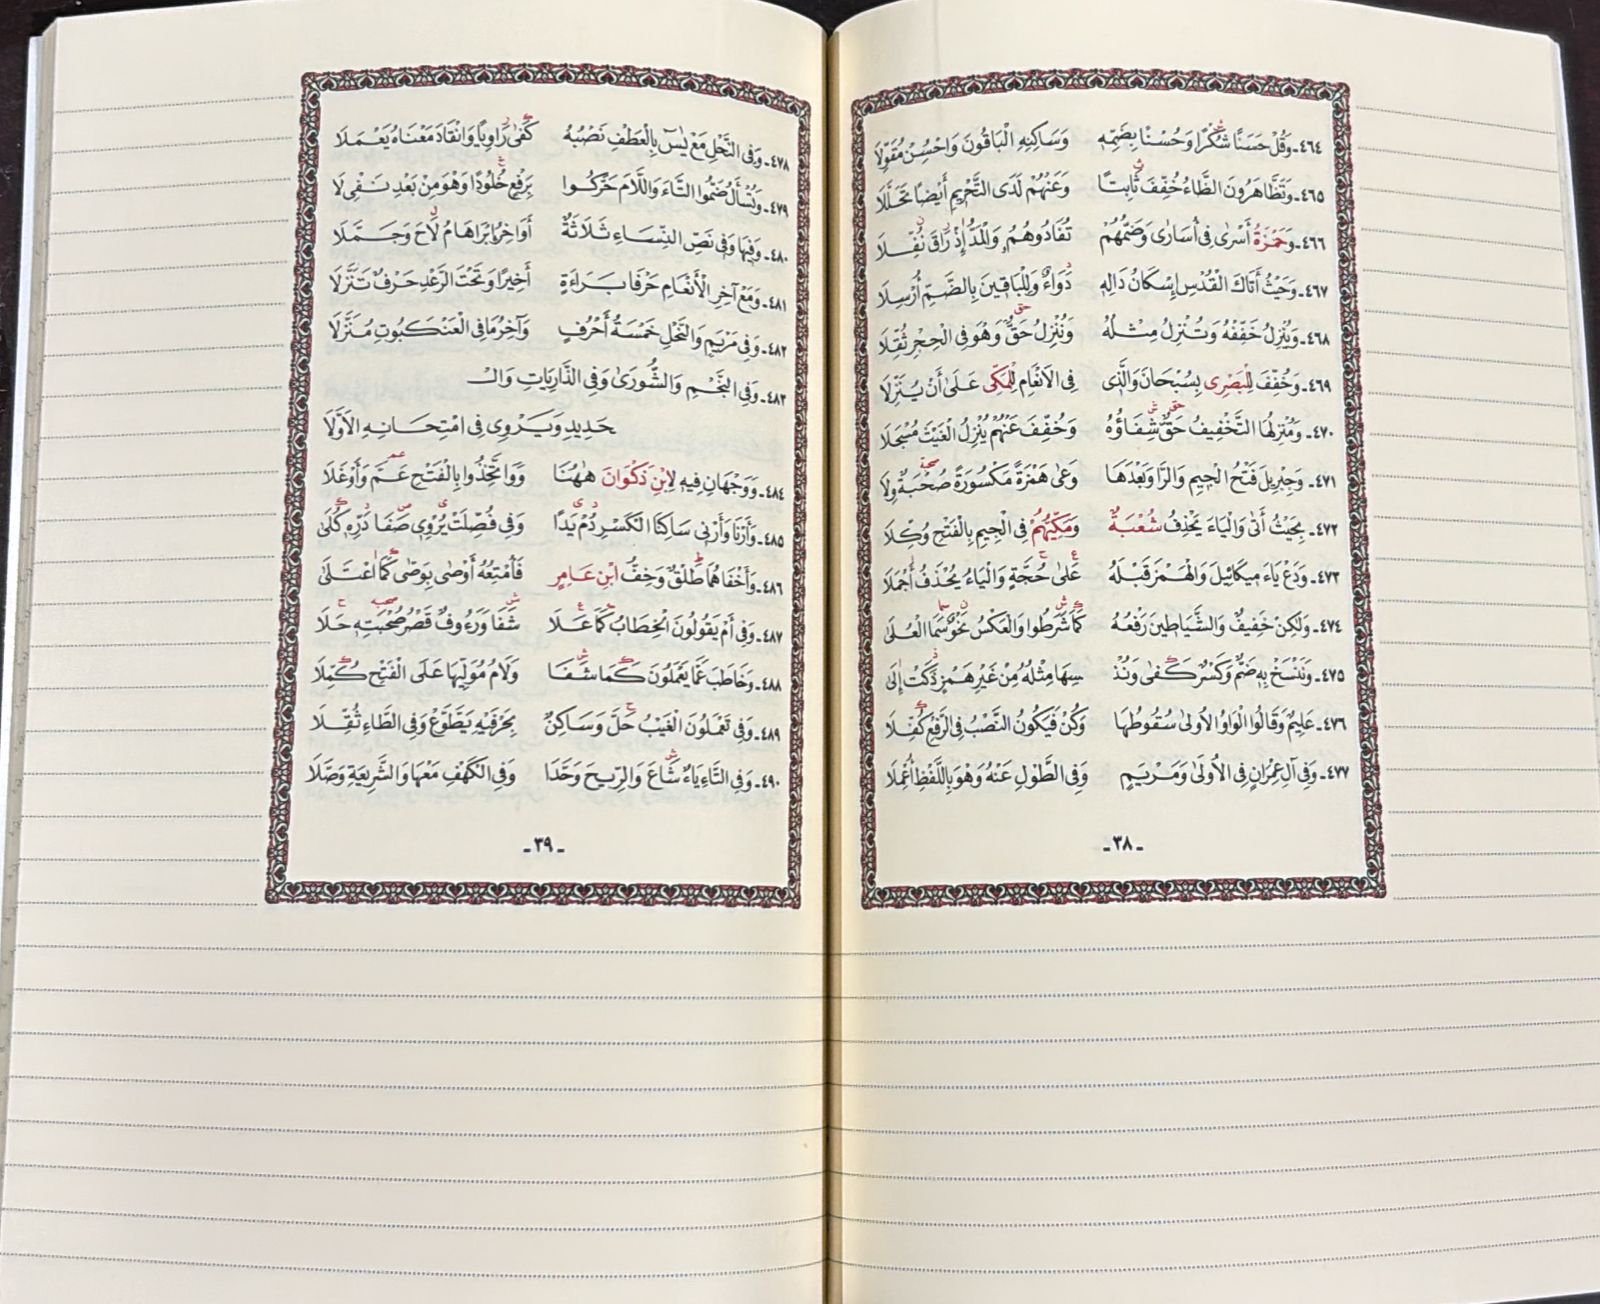 ٤٦٤- وَقُلْ حَسَنًا شُكْرًا وَحُسْنًا بِضَمِّهِ وَسَاكِنِهِ الْبَاقُونَ وَاحْسِنْ مُقَوِّلَا
٤٦٥- وَتَظَّاهَرُونَ الظَّاءُ خُفِّفَ ثَابِتًا وَعَنْهُمْ لَدَى التَّحْرِيمِ أَيْضًا تَحَلَّلَا
٤٦٦- وَحَمْزَةُ أَسْرَى فِي أُسَارَى وَضَمُّهُمْ تُفَادُوهُمُ وَالْمَدُّ إِذْ رَاقَ نُفِّلَا
٤٦٧- وَحَيْثُ أَتَاكَ الْقُدْسِ إِسْكَانُ دَالِهِ دَوَاءٌ وَلِلْبَاقِينَ بِالضَّمِّ أُرْسِلَا
٤٦٨- وَيُنْزِلُ خَفِّفْهُ وَتُنْزِلُ مِثْلُهُ وَنُنْزِلُ حَقٌّ وَهُوَ فِي الْحِجْرِ ثُقِّلَا
٤٦٩- وَخُفِّفَ لِلْبَصْرِي بِسُبْحَانَ وَالَّذِي فِي الَانْعَامِ لِلْمَكِّي عَلَى أَنْ يُنَزِّلَا
٤٧٠- وَمُنْزِلُهَا التَّخْفِيفُ حَقٌّ شِفَاؤُهُ وَخُفِّفَ عَنْهُمْ يُنْزِلُ الْغَيْثَ مُسْجَلَا
٤٧١- وَجِبْرِيلَ فَتْحُ الْجِيمِ وَالرَّا وَبَعْدَهَا وَعَى هَمْزَةً مَكْسُورَةً صُحْبَةٌ وِلَا
٤٧٢- بِحَيْثُ أَتَى وَالْيَاءَ يَحْذِفُ شُعْبَةٌ وَمَكِّيُّهُمْ فِي الْجِيمِ بِالْفَتْحِ وُكِّلَا
٤٧٣- وَدَعْ يَاءَ مِيكَائِيلَ وَالْهَمْزَ قَبْلَهُ عَلَى حُجَّةٍ وَالْيَاءُ يُحْذَفُ أَجْمَلَا
٤٧٤- وَلَكِنْ خَفِيفٌ وَالشَّيَاطِينُ رَفْعُهُ كَمَا شَرَطُوا وَالْعَكْسُ نَحْوٌ سَمَا الْعُلَى
٤٧٥- وَنَنْسَخْ بِهِ ضَمٌّ وَكَسْرٌ كَفَى وَنُنْـ ـسِهَا مِثْلُهُ مِنْ غَيْرِ هَمْزٍ ذَكَتْ إِلَى
٤٧٦- عَلِيمٌ وَقَالُوا الْوَاوُ الُاولَى سُقُوطُهَا وَكُنْ فَيَكُونُ النَّصْبُ فِي الرَّفْعِ كُفِّلَا
٤٧٧- وَفِي آلِ عِمْرَانٍ فِي الُاولَى وَمَرْيَمٍ وَفِي الطَّوْلِ عَنْهُ وَهْوَ بِاللَّفْظِ أُعْمِلَا
-٣٨-
٤٧٨- وَفِي النَّحْلِ مَعْ يٰسٓ بِالْعَطْفِ نَصْبُهُ كَفَى رَاوِيًا وَانْقَادَ مَعْنَاهُ يَعْمَلَا
٤٧٩- وَتُسْأَلُ ضَمُّوا التَّاءَ وَاللَّامَ حَرَّكُوا بِرَفْعٍ خُلُودًا وَهُوَ مِنْ بَعْدِ نَفْيِ لَا
٤٨٠- وَفِيهَا وَفِي نَصِّ النِّسَاءِ ثَلَاثَةٌ أَوَاخِرُ ابْرَاهَامُ لَاحَ وَجَمَّلَا
٤٨١- وَمَعْ آخِرِ الْأَنْعَامِ حَرْفَا بَرَاءَةٍ أَخِيرًا وَتَحْتَ الرَّعْدِ حَرْفٌ تَنَزَّلَا
٤٨٢- وَفِي مَرْيَمٍ وَالنَّحْلِ خَمْسَةُ أَحْرُفٍ وَآخِرُ مَا فِي الْعَنْكَبُوتِ مُنَزَّلَا
٤٨٣- وَفِي النَّجْمِ وَالشُّورَى وَفِي الذَّارِيَاتِ وَالْـ
ـحَدِيدِ وَيَرْوِي فِي امْتِحَانِهِ الَاوَّلَا
٤٨٤- وَوَجْهَانِ فِيهِ لِابْنِ ذَكْوَانَ هٰهُنَا وَوَاتَّخِذُوا بِالْفَتْحِ عَمَّ وَأَوْغَلَا
٤٨٥- وَأَرْنَا وَأَرْنِي سَاكِنَا الْكَسْرِ دُمْ يَدًا وَفِي فُصِّلَتْ يُرْوِي صَفَا دَرِّهِ كُلَى
٤٨٦- وَأَخْفَاهُمَا طَلْقٌ وَخِفُّ ابْنِ عَامِرٍ فَأُمْتِعُهُ أَوْصَى بِوَصَّى كَمَا اعْتَلَى
٤٨٧- وَفِي أَمْ يَقُولُونَ الْخِطَابُ كَمَا عَلَا شَفَا وَرَءُوفٌ قَصْرُ صُحْبَتِهِ حَلَا
٤٨٨- وَخَاطَبَ عَمَّا يَعْمَلُونَ كَمَا شَفَا وَلَامُ مُوَلِّيهَا عَلَى الْفَتْحِ كُمِّلَا
٤٨٩- وَفِي تَعْمَلُونَ الْغَيْبُ حَلَّ وَسَاكِنٌ بِحَرْفَيْهِ يَطَّوَّعْ وَفِي الطَّاءِ ثُقِّلَا
٤٩٠- وَفِي التَّاءِ يَاءٌ شَاعَ وَالرِّيحَ وَحَّدَا وَفِي الْكَهْفِ مَعْهَا وَالشَّرِيعَةِ وَصَّلَا
-٣٩-